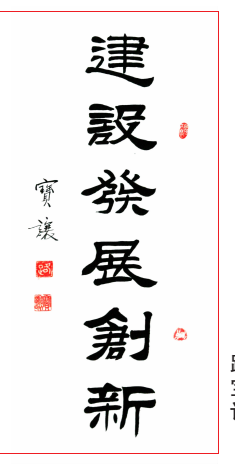 建設發展創新
寶讓